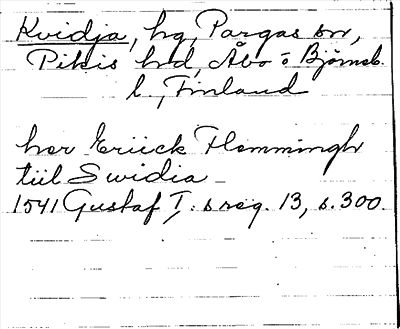 Kvidja, hg, Pargas sn,
Pikis hrd, Åbo o Björneb.
l., Finland
her Eriick Flemmingh
tiil Swidia
1541 Gustaf I: s reg. 13, s. 300.